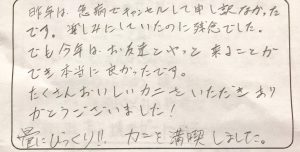 昨年は急病でキャンセルして申し訳なかった
です。楽しみにしていたのに残念でした。
でも今年はお友達とやっと来ることが
でき本当に良かったです。
たくさんおいしいカニをいただきあり
がとうございました!
量にびっくり!! カニを満喫しました。